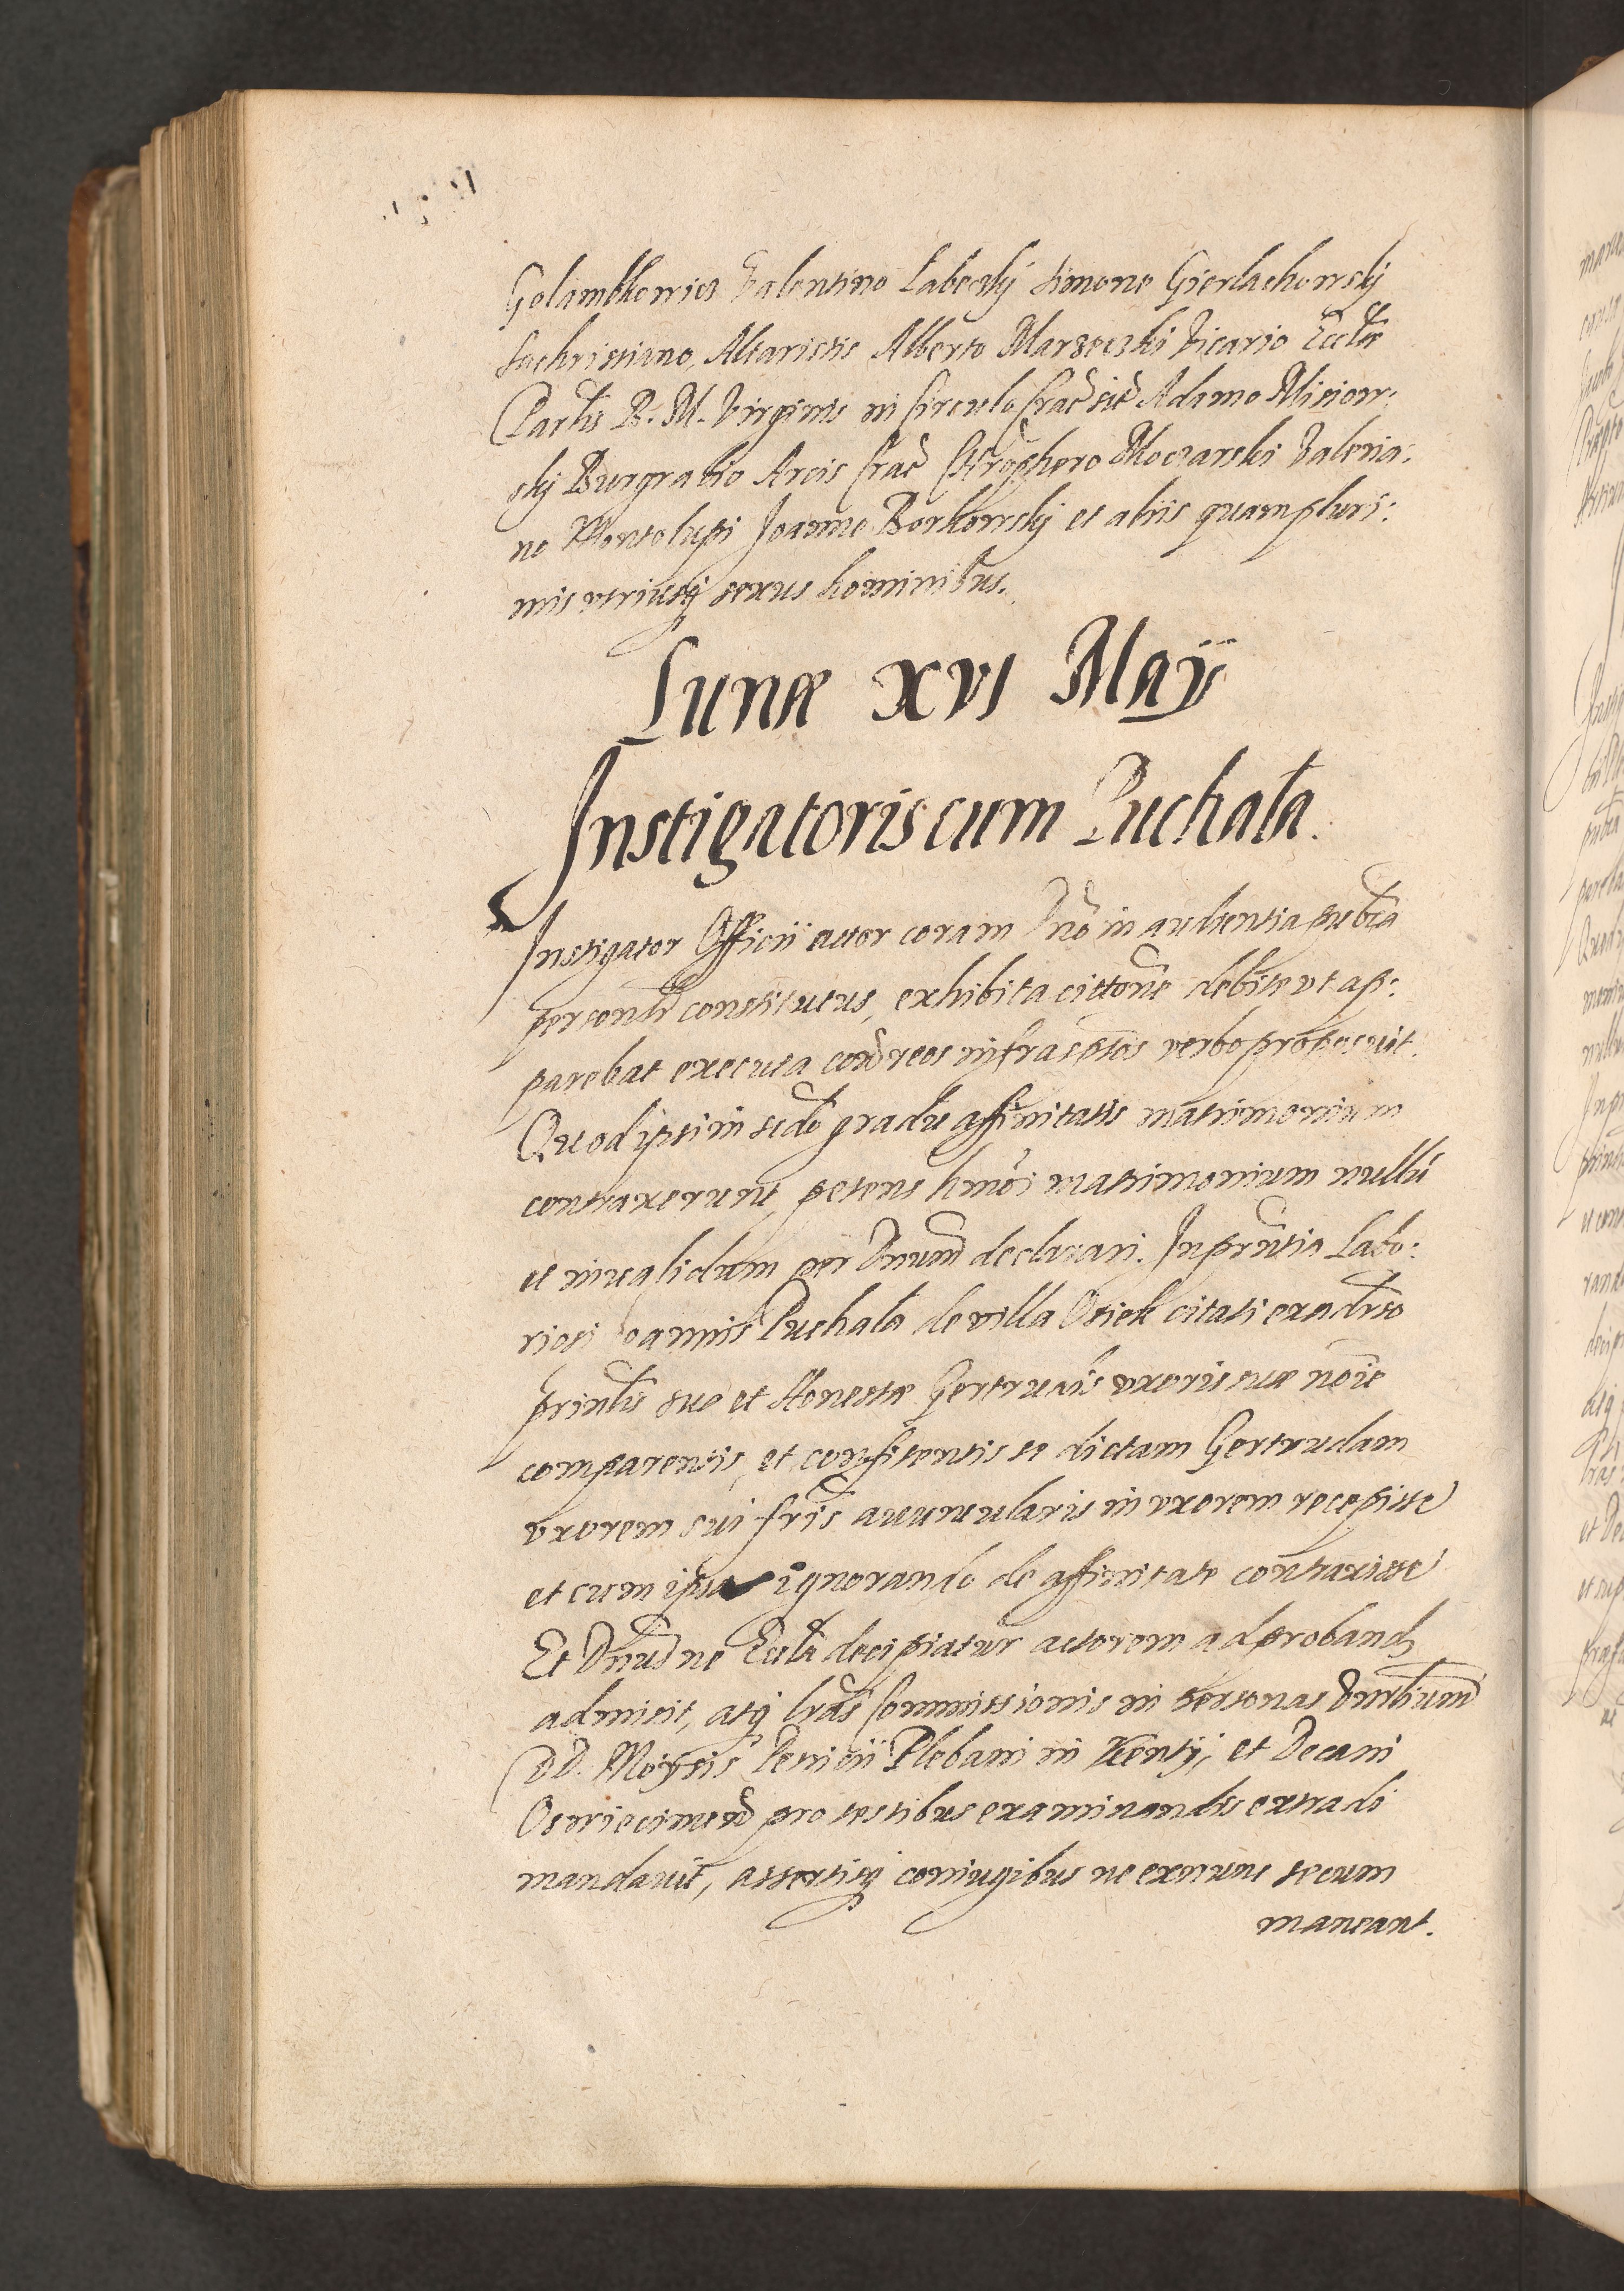 Golambkowicz Valentino Labeczkÿ Simone Gierlachowskÿ
sachristiano, Altaristis Alberto Marszewski Vicario Eccłæ
Parłis B. M. Virginis in Circulo Crac̃ sit̃ Adamo Misiow:
skÿ Burgrabio Arcis Crac̃ Chr̃ophero Moczarski Valeria:
no Montolupi Joanne Borkowskÿ et aliis quampluri:
mis vtriusq̃ sexus hominibus.
Lunæ XVI Maÿ
Instigatoris cum Puchała.
Instigator Officii actor coram Dno in audientia publ̃ca
personłr constitutus, exhibita citt̃one debite vt ap:
parebat executa cont̃ reos infrasc̃ptos verbo proposuit.
Quod ipsi in sec̃do gradu affinitatis matrimonium
contraxerunt, petens hm̃oi matrimonium nullũ
et inualidum per Dnum declarari. In pr̃ntia Labo:
riosi Joannis Puchała de villa Osiek citati ex aduerso
principlr̃ suo et Honestæ Gertrudis vxoris suæ noĩe
comparentis, et confitentis se dictam Gertrudam
vxorem sui fr̃is auunularis in vxorem recepisse
et cum ipsa ignorando de affinitate contraxisse
Et Dnus ne Eccła decipiatur actorem ad proband̃
admisit, atq̃ lr̃as Commissionis in personas Dnrũm
DD. Moÿsis Plebani in Kentÿ, et Decani
Oswiecimen̄ pro testibus examinandis extradi
mandauit, assertisq̃ coniugibus ne exnunc secum
maneant.